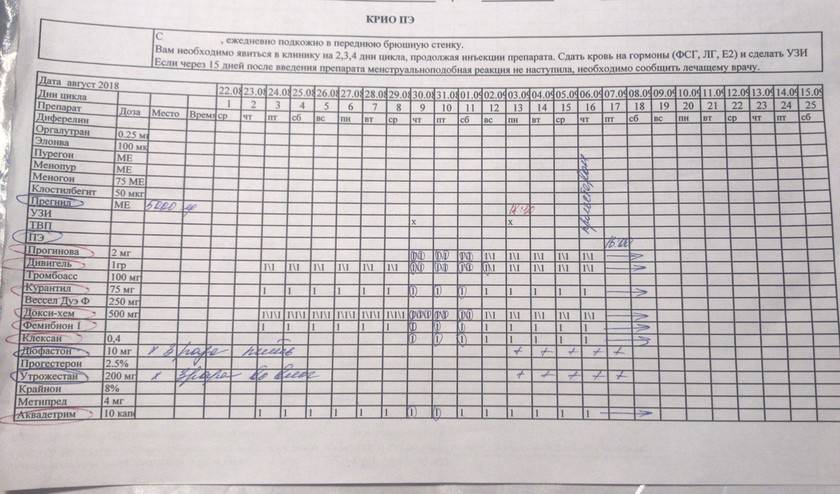 КРИО ПЭ
С , ежедневно подкожно в переднюю брюшную стенку.
Вам необходимо явиться в клинику на 2,3,4 дни цикла, продолжая инъекции препарата. Сдать кровь на гормоны (ФСГ, ЛГ, Е2) и сделать УЗИ
Если через 15 дней после введения препарата менструальноподобная реакция не наступила, необходимо сообщить лечащему врачу.
Дата август 2018 22.08 23.08 24.08 25.08 26.08 27.08 28.08 29.08 30.08 31.08 01.09 02.09 03.09 04.09 05.09 06.09 07.09 08.09 09.09 10.09 11.09 12.09 13.09 14.09 15.09
Дни цикла 1 2 3 4 5 6 7 8 9 10 11 12 13 14 15 16 17 18 19 20 21 22 23 24 25
Препарат Доза Место Время ср чт пт сб вс пн вт ср чт пт сб вс пн вт ср чт пт сб вс пн вт ср чт пт сб
Диферелин
Оргалутран 0.25 мг
Элонва 100 мк
Пурегон МЕ
Менопур МЕ
Меногон 75 МЕ
Клостилбегит 50 мкг
Прегнил МЕ 5000
УЗИ х х
ТВП
ПЭ 15:00
Прогинова 2 мг
Дивигель 1гр
Тромбоасс 100 мг
Курантил 75 мг 1 1 1 1 1 1 1 1 1 1 1 1 1 1
Вессел Дуэ Ф 250 мг
Докси-хем 500 мг
Фемибион 1 1 1 1 1 1 1 1 1 1 1 1 1 1 1
Клексан 0,4 1 1 1 1 1 1 1 1
Дюфастон 10 мг х 3 раза + + + + +
Прогестерон 2.5%
Утрожестан 200 мг х 3 раза во влаг + + + + +
Крайнон 8%
Метипред 4 мг
Аквадетрим 10 кап 1 1 1 1 1 1 1 1 1 1 1 1 1 1 1